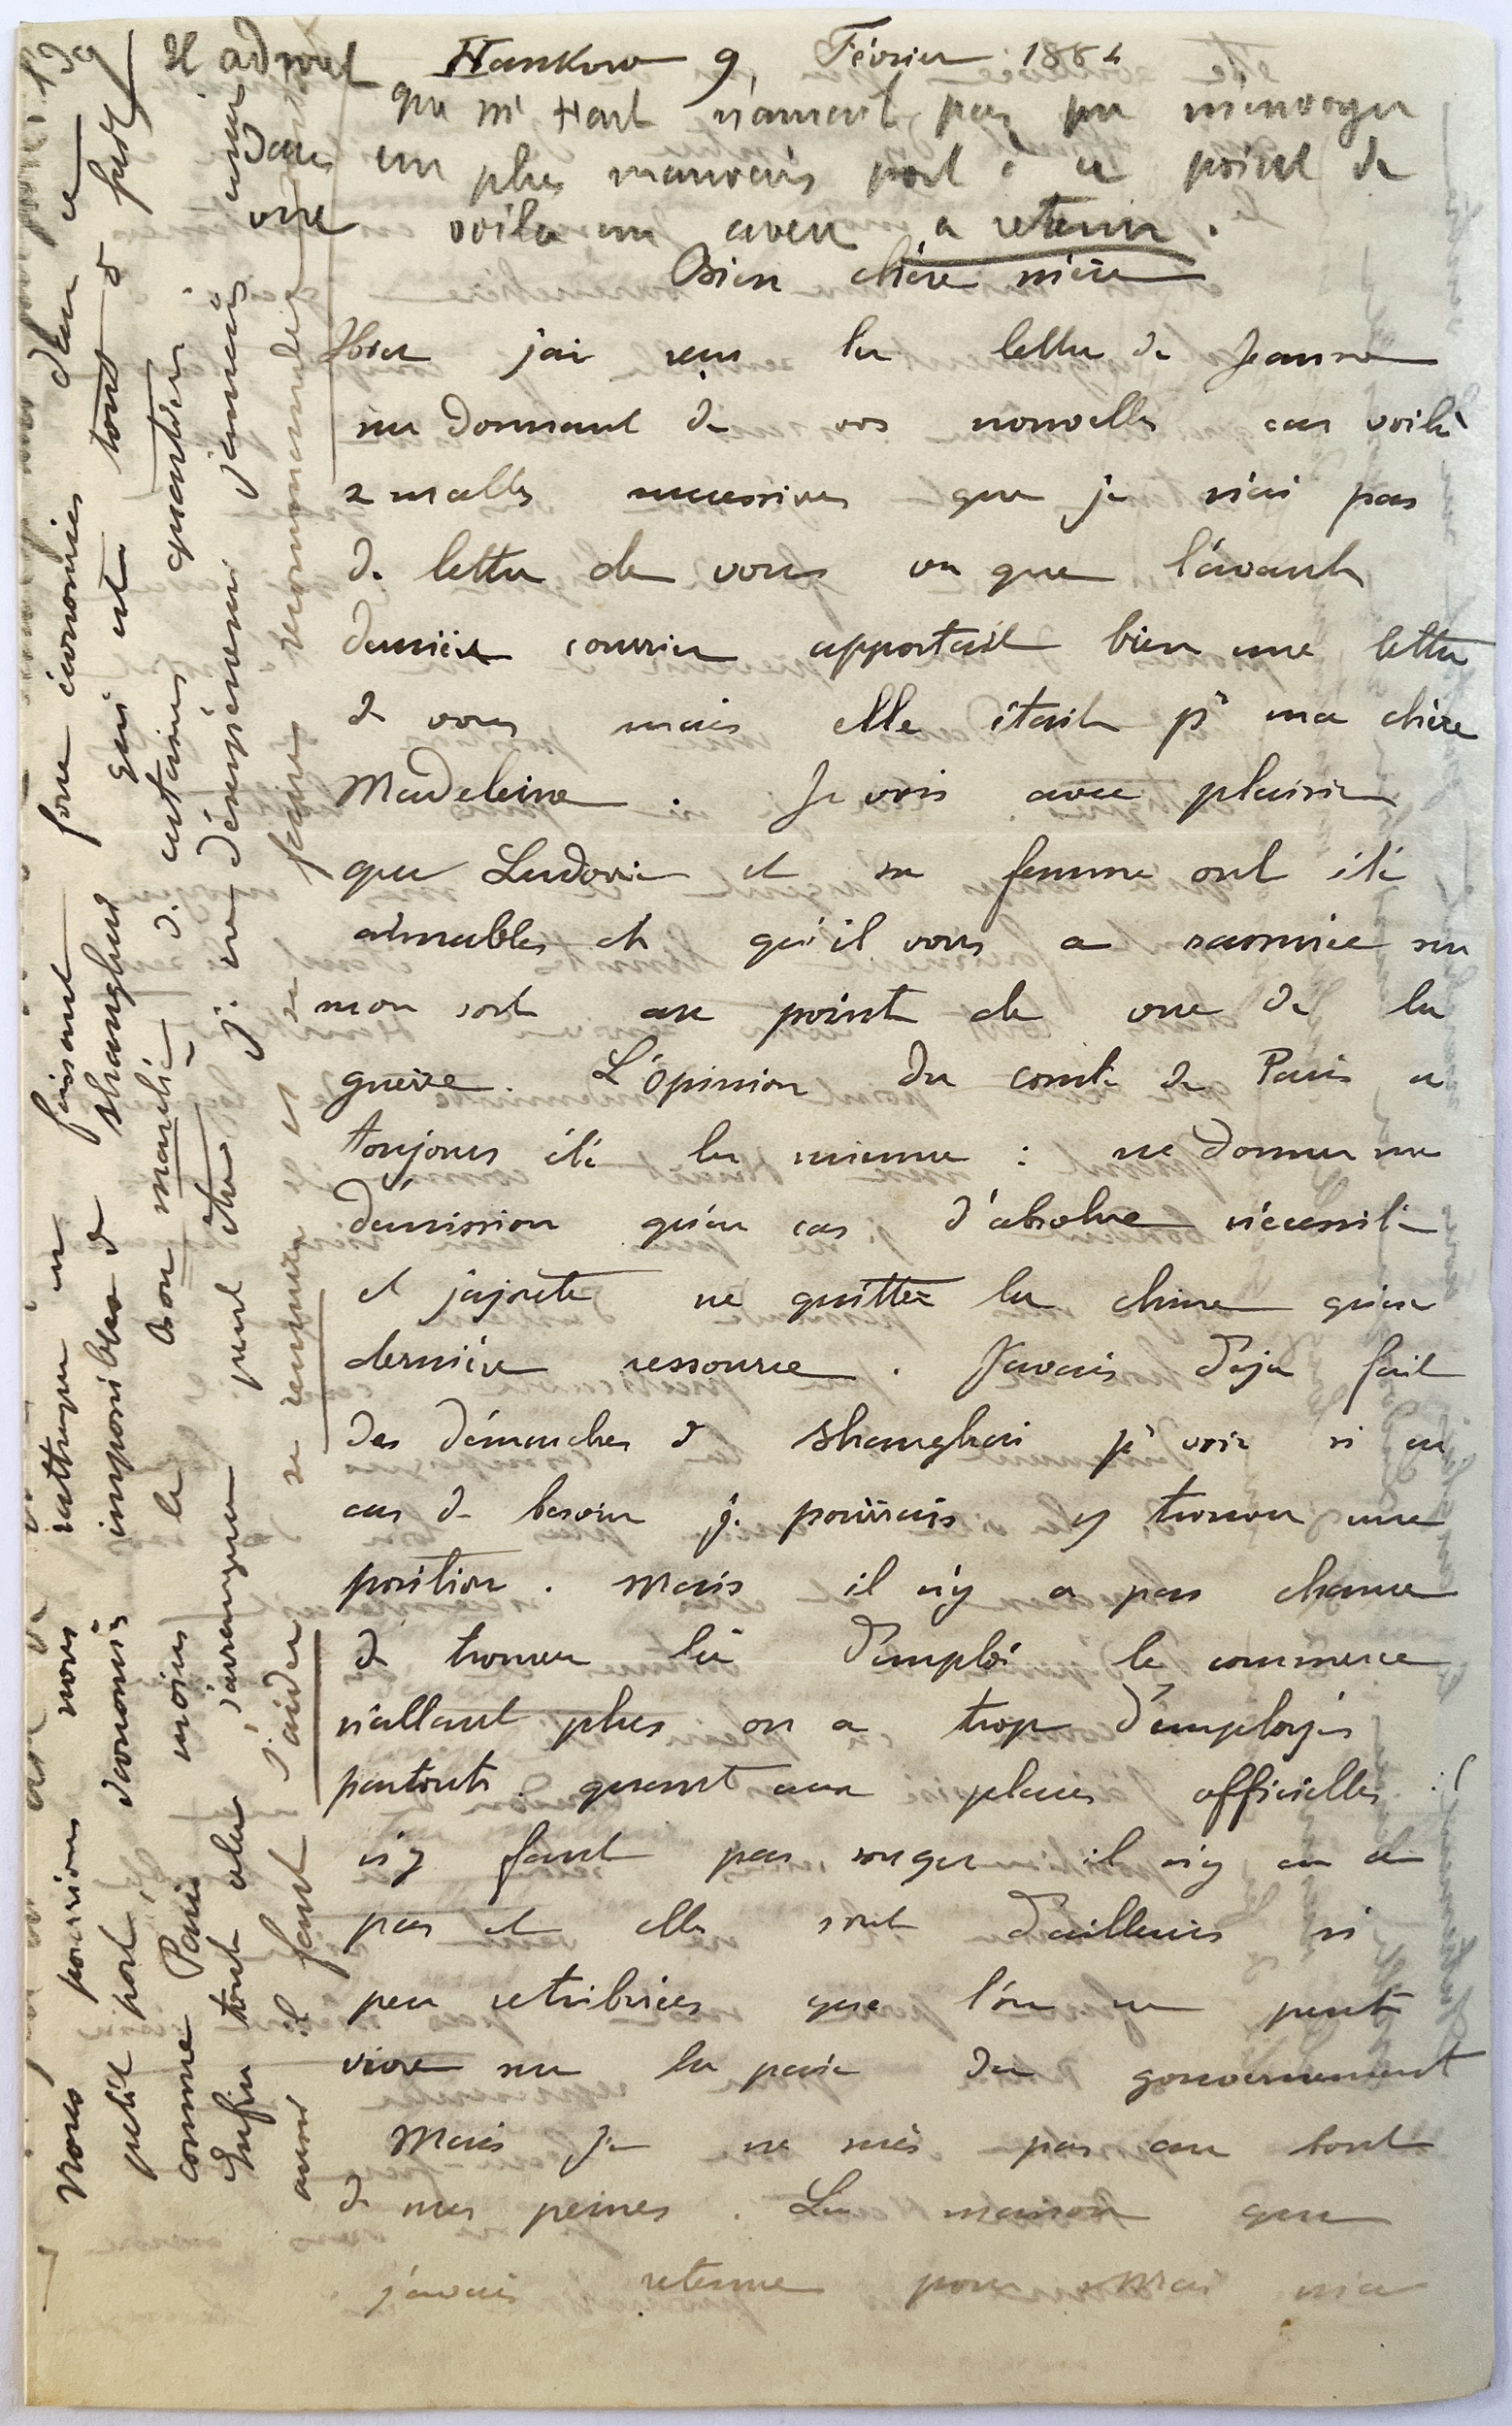 Hankow 9 Février 1884
Il admet
que Mr Hart n'aurait pas pu m'envoyer
dans un plus mauvais port à ce point de
vue voila un aveu a retenir.
Bien chère mère
Hier j'ai reçu la lettre de Jeanne
me donnant de vos nouvelles car voilà
2 malles successives que je n'ai pas
de lettre de vous vu que l'avant
dernièr courrier apportait bien une lettre
de vous mais elle était pr ma chère
Madeleine. Je vois avec plaisir
que Ludovic et sa femme ont été
aimables et qu'il vous a rassurée sur
mon sort au point de vue de la
guerre. L'opinion du comte de Paris a
toujours été la mienne : ne donner ma
démission qu'en cas d'absolue nécessité
et j'ajoute ne quitter la chine qu'en
dernière ressource. J'avais déja fait
des démarches à Shanghai pr voir si en
cas de besoin je pourrais y trouver une
position. Mais il n'y a pas chance
de trouver là d'emploi le commerce
n'allant plus on a trop d'employés
partout. quant aux places officielles
n'y faut pas songer il n'y en a
pas et elles sont d'ailleurs si
peu retribuées que l'on ne peut
vivre sur la paie du gouvernement
Mais je ne suis pas au bout
de mes peines. La maison que
j'avais retenue pour Mai m'a
Nous pourrions nous rattraper en faisant force économies dans un
petit port, économies impossibles à Shanghai qui est tout à fait
comme Paris moins le bon marché de certains quartiers
Enfin tout cela s'arrangera peut être je ne désespérerai jamais mais
aussi il faut s'aider se remuer et se faire recommander